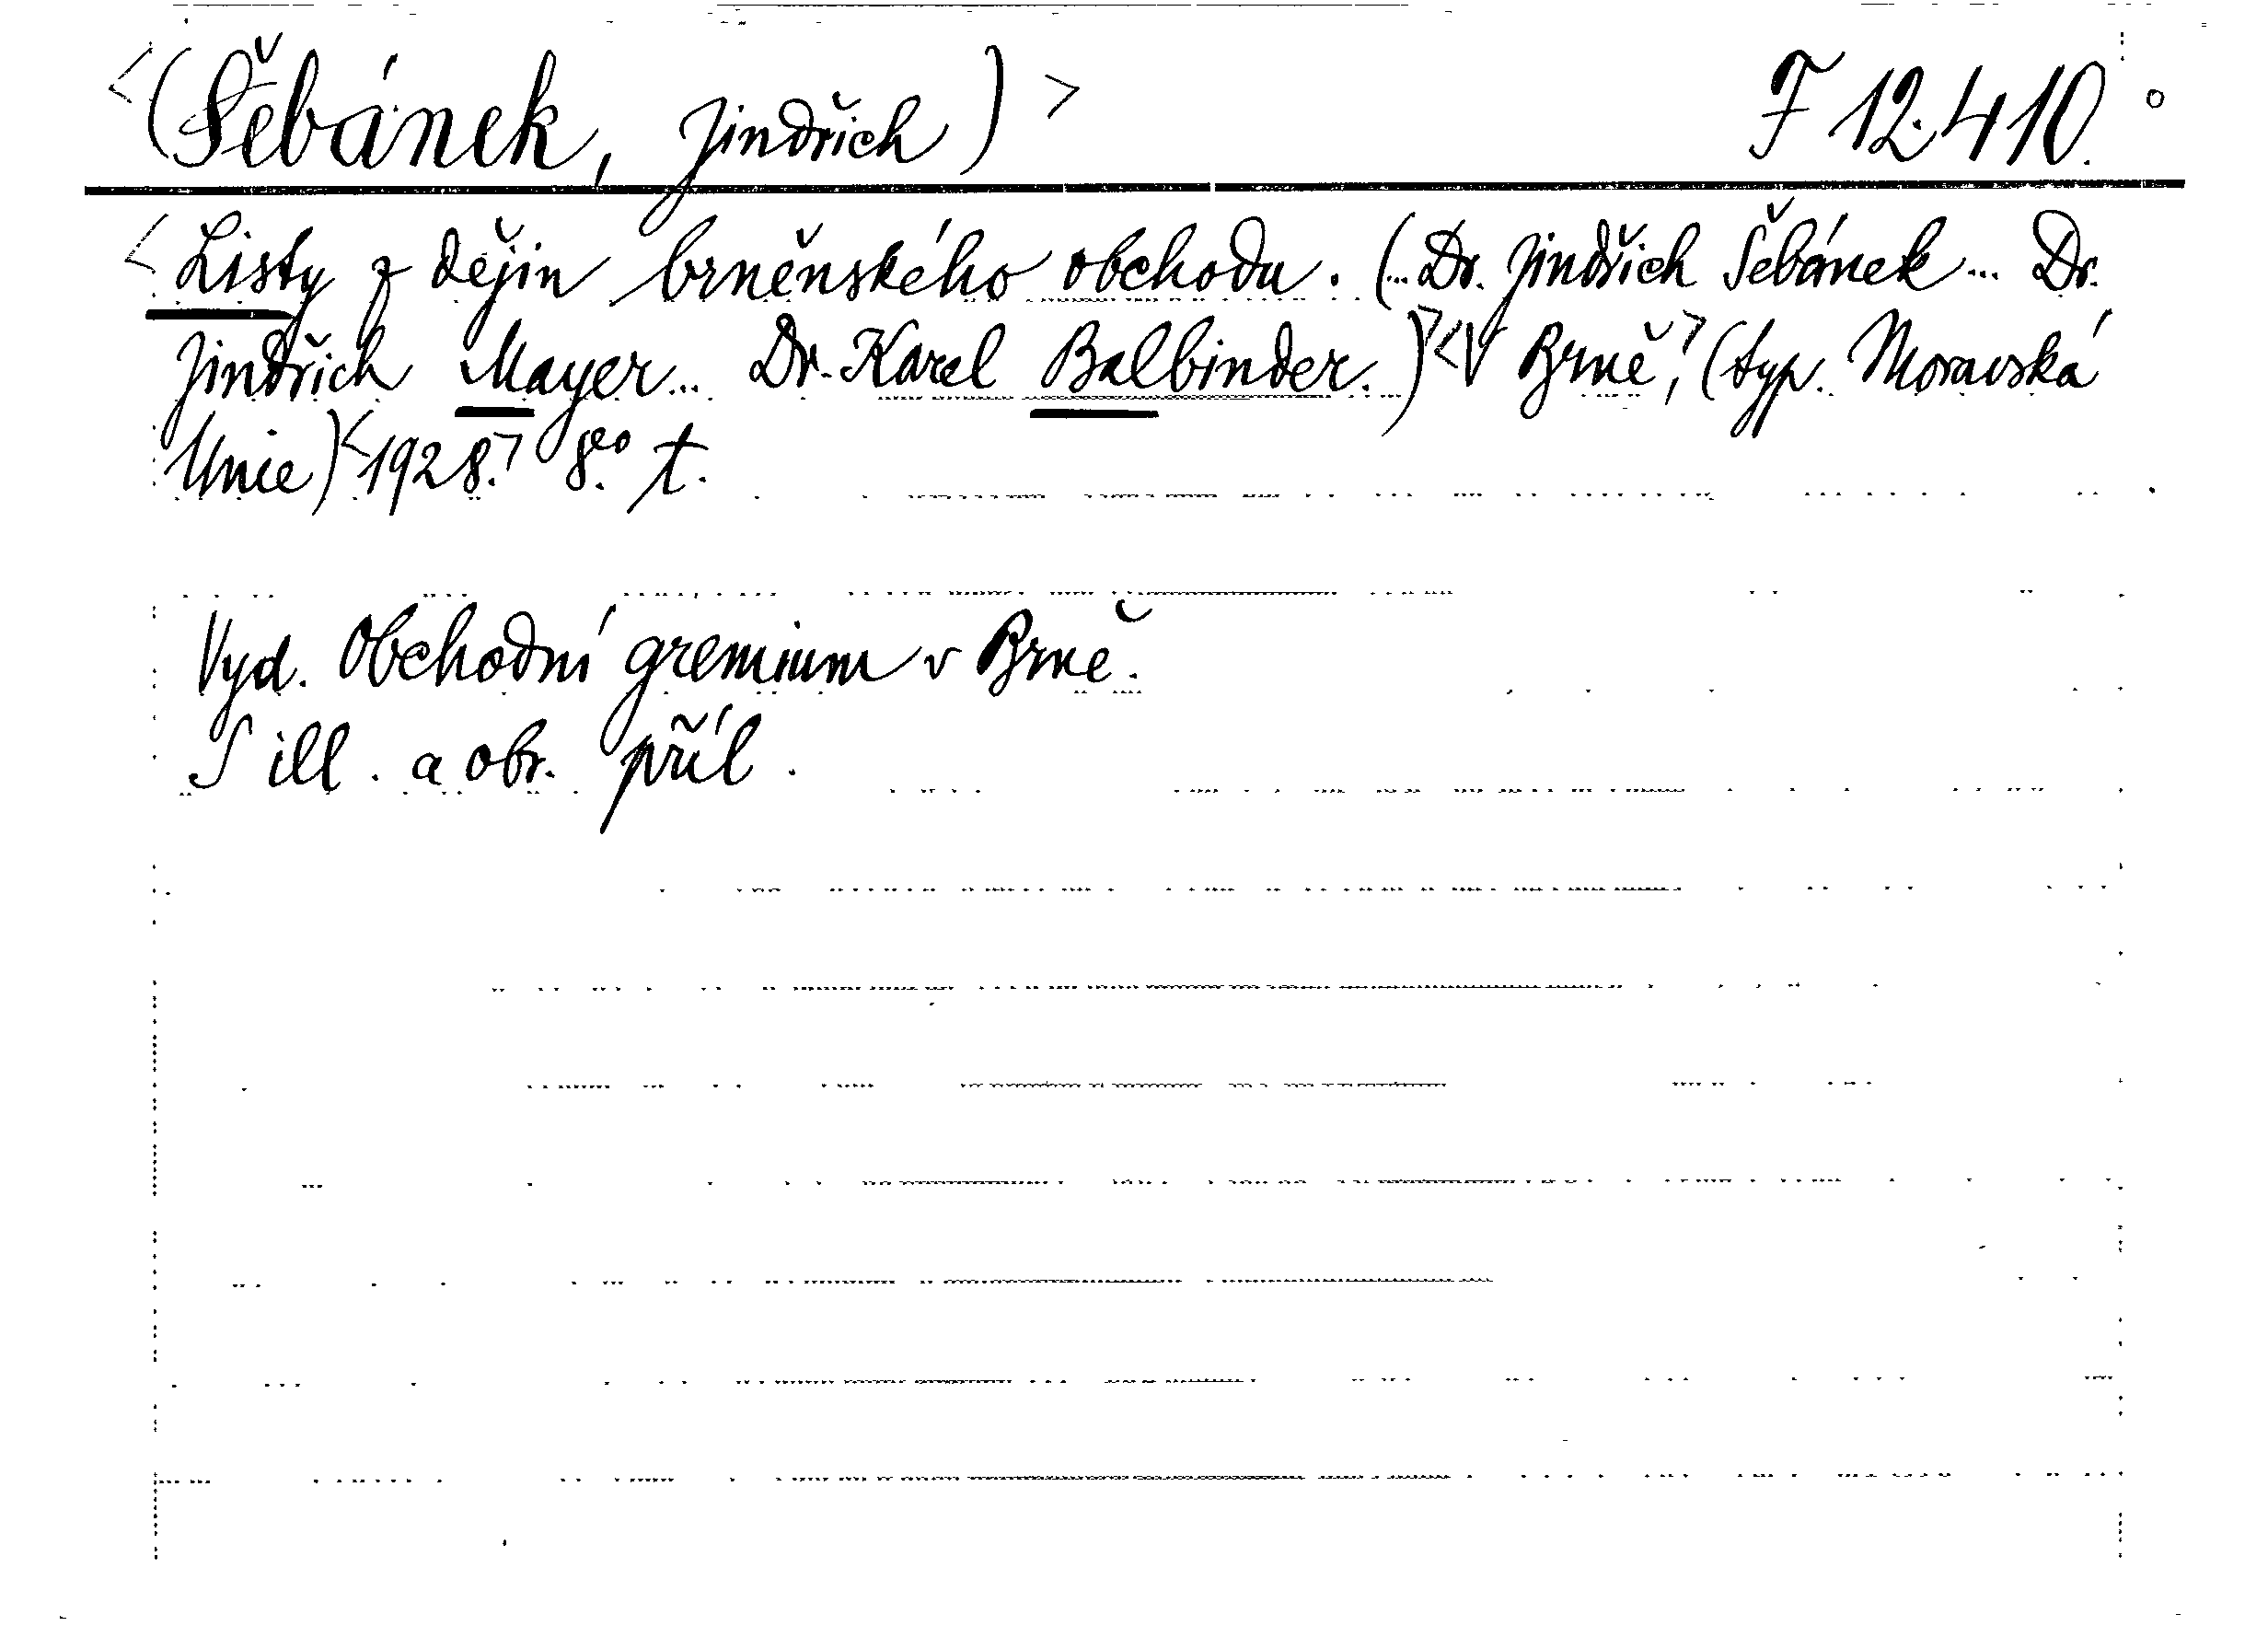 <(Šebánek, Jindřich)> F 12.410.
<Listy z dějin brněnského obchodu. (...Dr. Jindřich Šebánek... Dr.
Jindřich Mayer... Dr. Karel Balbinder.)><V Brně,> (typ. Moravská
Unie)<1928.> 8eo t.
Vyd. Obchodní gremium v Brně.
S ill. a obr. příl.